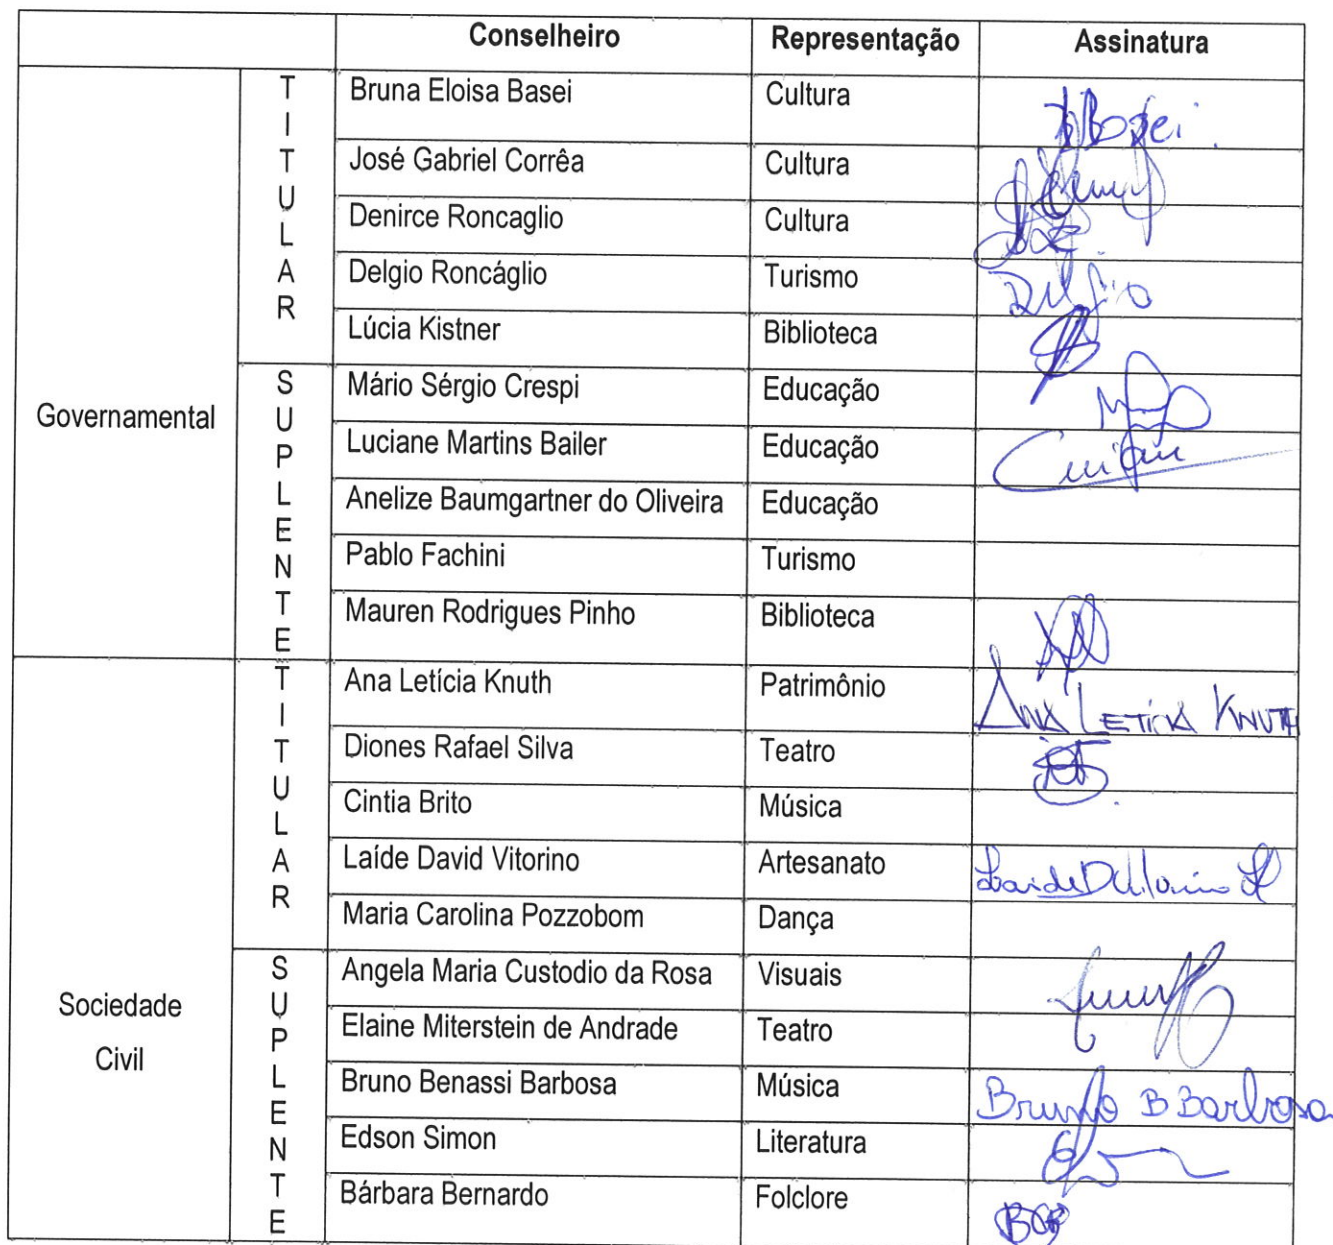 Conselheiro Representação Assinatura
Governamental
TITULAR
Bruna Eloisa Basei Cultura BBasei
José Gabriel Corrêa Cultura
Denirce Roncaglio Cultura
Delgio Roncáglio Turismo Delgio
Lúcia Kistner Biblioteca
SUPLENTE
Mário Sérgio Crespi Educação
Luciane Martins Bailer Educação
Anelize Baumgartner do Oliveira Educação
Pablo Fachini Turismo
Mauren Rodrigues Pinho Biblioteca
Sociedade
Civil
TITULAR
Ana Letícia Knuth Patrimônio ANA LETICIA KNUTH
Diones Rafael Silva Teatro
Cintia Brito Música
Laíde David Vitorino Artesanato
Maria Carolina Pozzobom Dança
SUPLENTE
Angela Maria Custodio da Rosa Visuais
Elaine Miterstein de Andrade Teatro
Bruno Benassi Barbosa Música Bruno B Barbosa
Edson Simon Literatura
Bárbara Bernardo Folclore